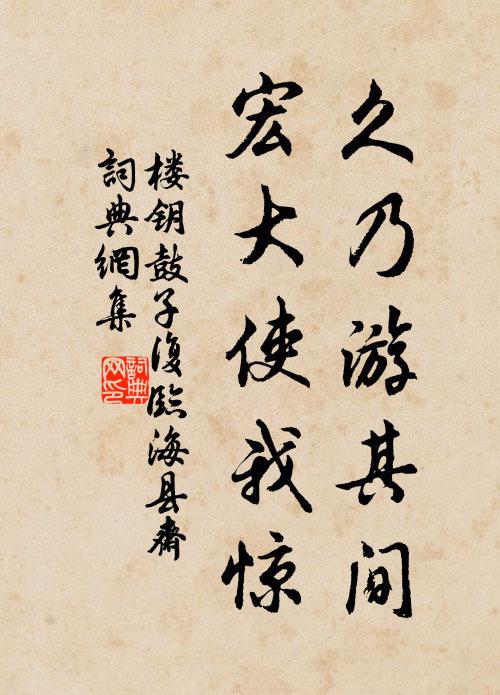 久乃游其间
宏大使我惊
楼钥鼓子復臨海县斋
詞典網集
詞典网印